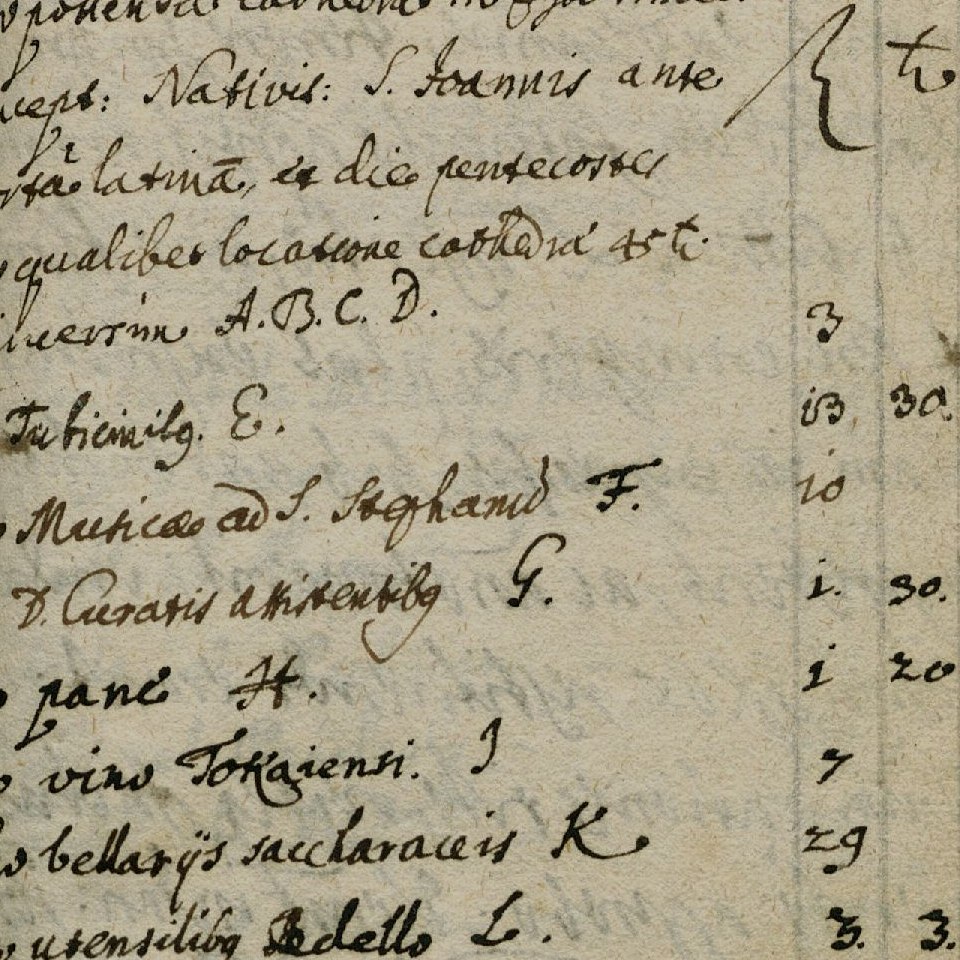 cept: Nativit: S. Joannis ante fl xr
rtã latinã, et die pentecostes
qualibet locatione cathedra 45 xr
A. B. C. D. 3
Tubicinibq. E. i3 30.
Musicæ ad S. Stephanũ F. i0
D. Curatis assistentibq G. i. 30.
pane H. i 20
vino Tokaiensi. J 7
bellarijs saccharaceis K 29
utensilibq Bedello L. 3. 3.